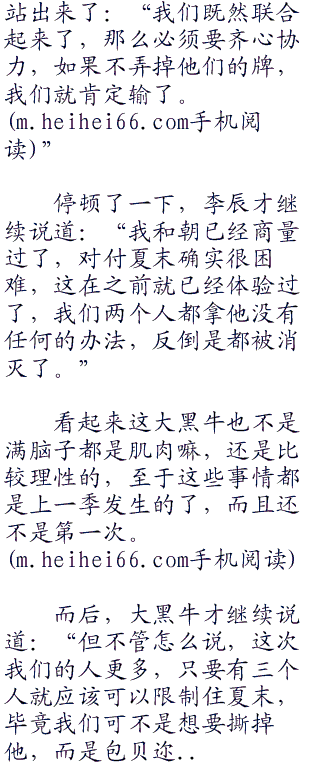 站出来了：“我们既然联合
起来了，那么必须要齐心协
力，如果不弄掉他们的牌，
我们就肯定输了。
(m.heihei66.com手机阅
读)”
停顿了一下，李辰才继
续说道：“我和朝已经商量
过了，对付夏末确实很困
难，这在之前就已经体验过
了，我们两个人都拿他没有
任何的办法，反倒是都被消
灭了。”
看起来这大黑牛也不是
满脑子都是肌肉嘛，还是比
较理性的，至于这些事情都
是上一季发生的了，而且还
不是第一次。
(m.heihei66.com手机阅读)
而后，大黑牛才继续说
道：“但不管怎么说，这次
我们的人更多，只要有三个
人就应该可以限制住夏末，
毕竟我们可不是想要撕掉
他，而是包贝迩..